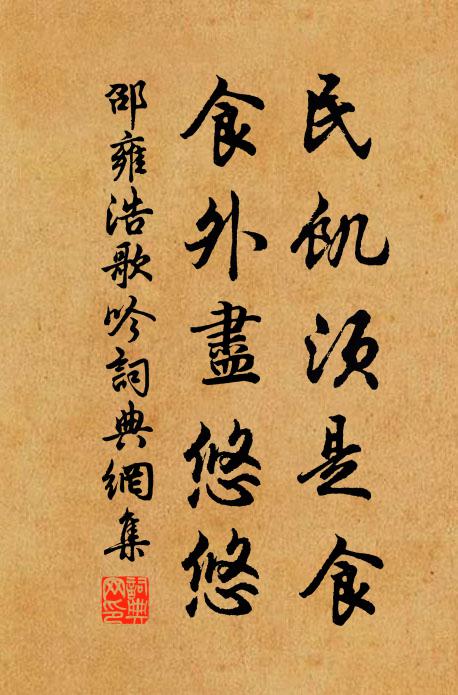 民飢須是食
食外盡悠悠
邵雍浩歌吟詞典網集
詞典
网印